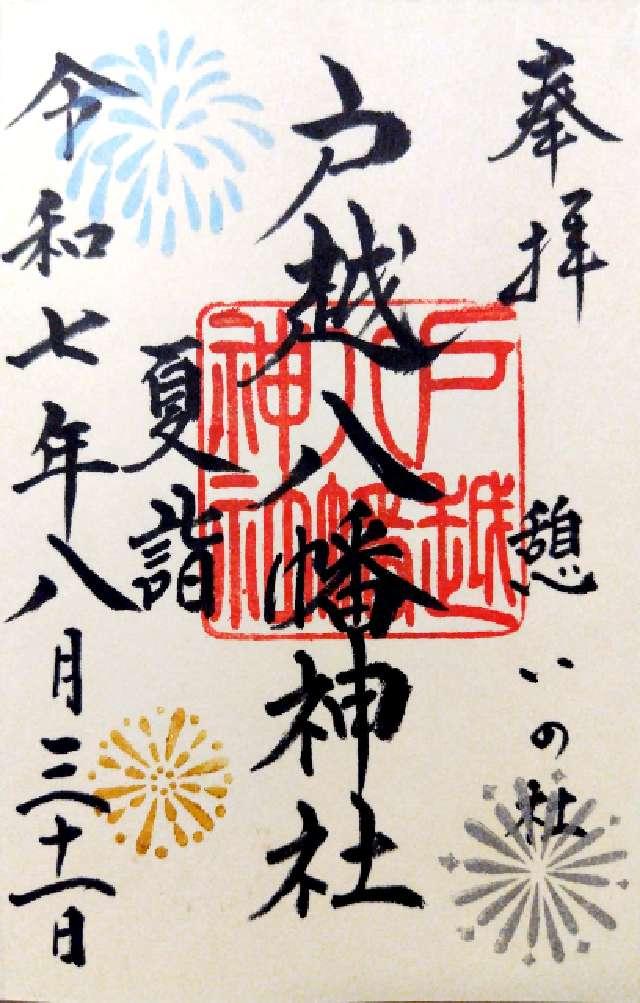 奉拝
憩いの社
戸越八幡神社
戸越
八幡
神社
夏詣
令和七年八月三十一日